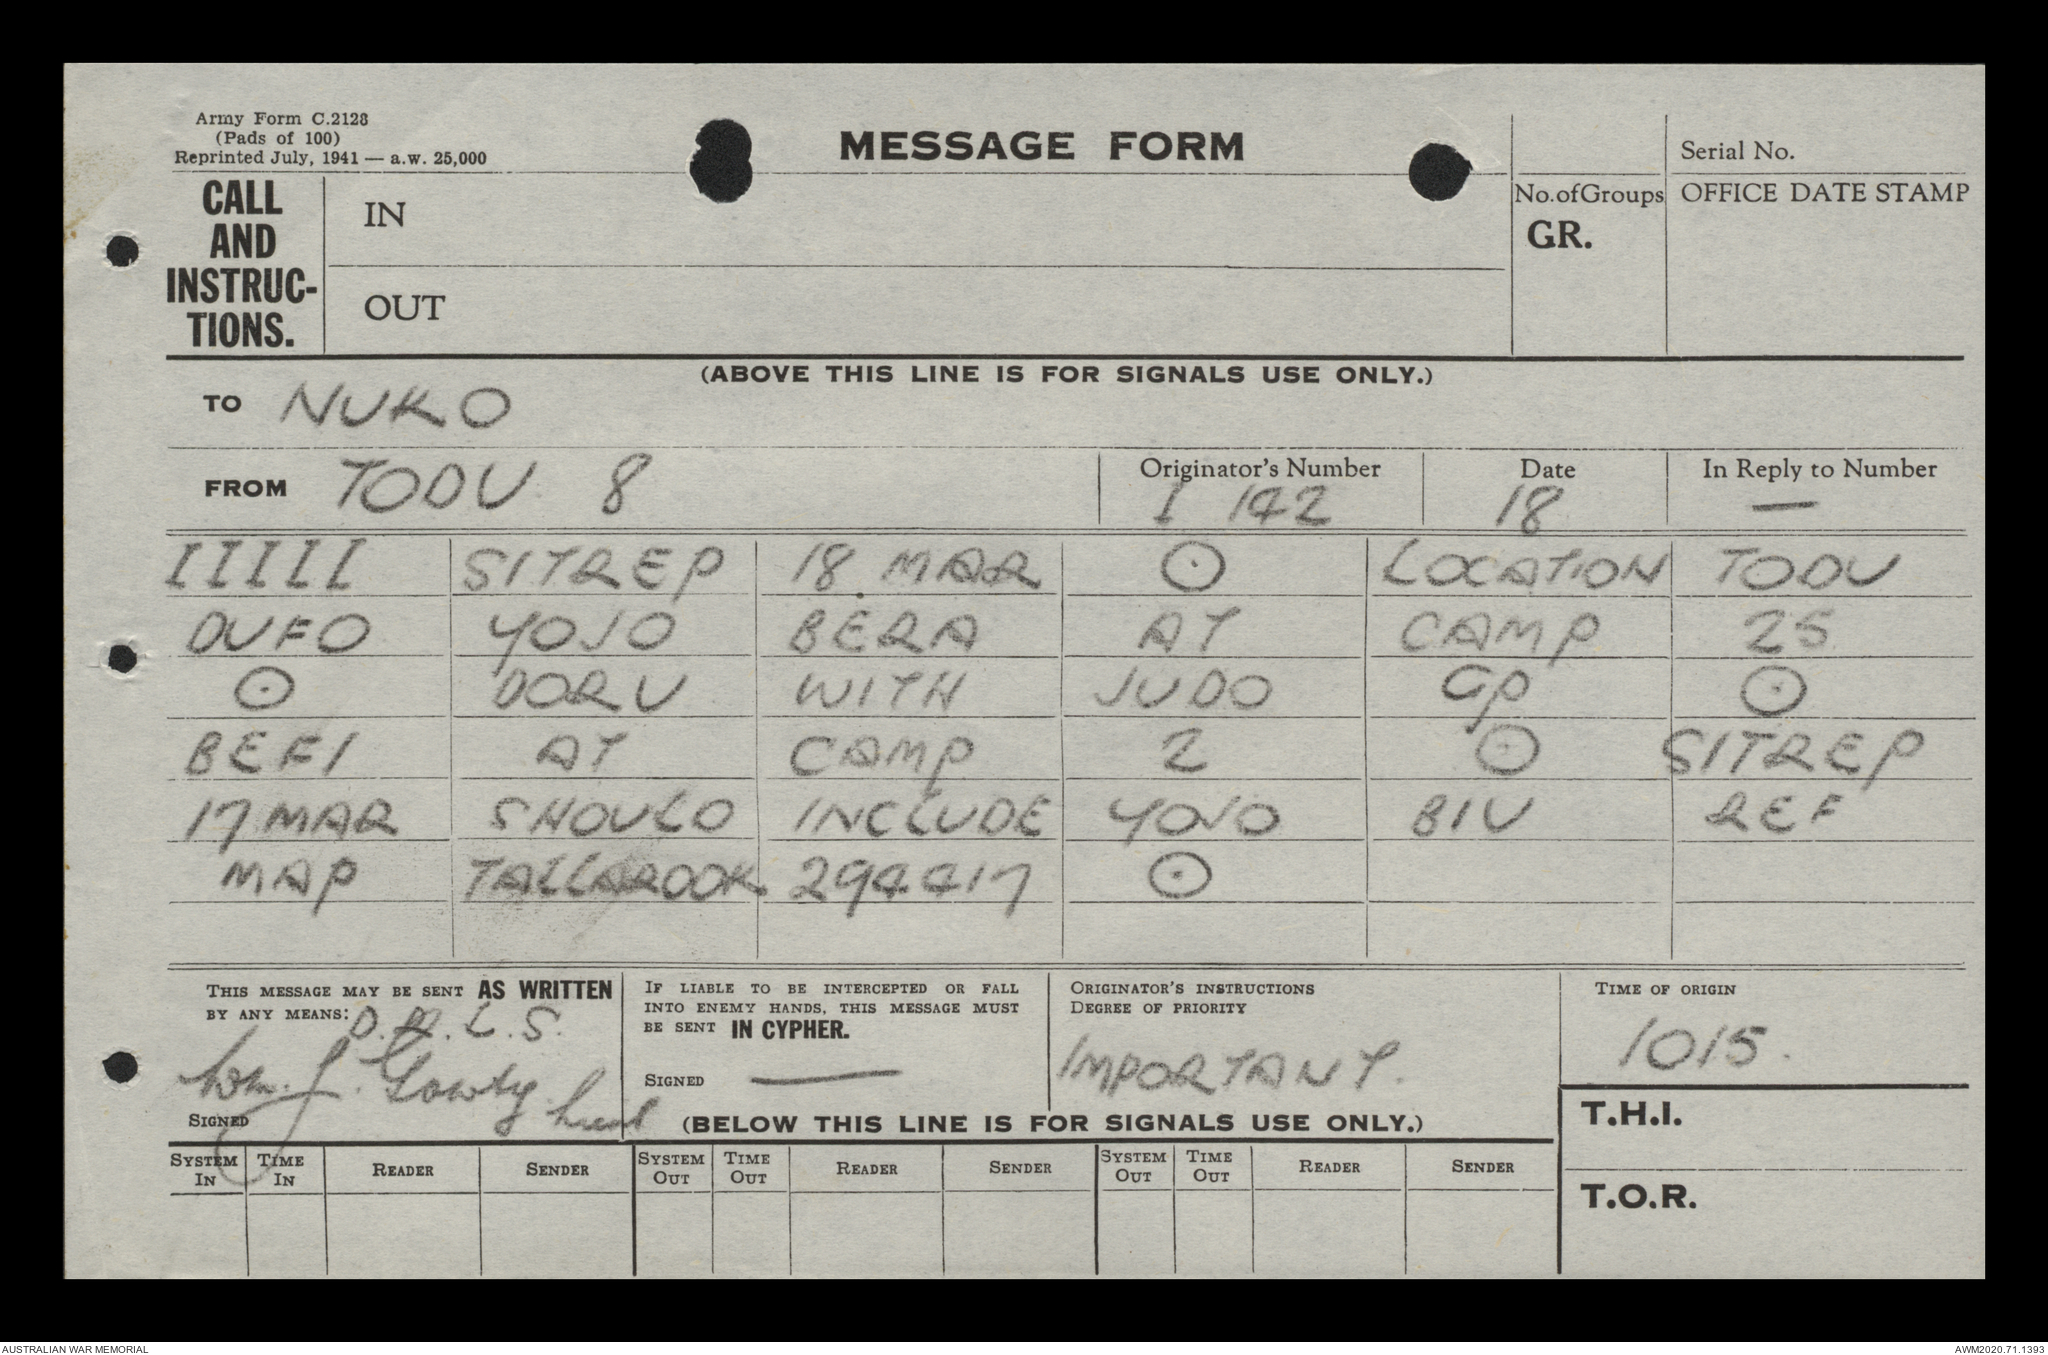 Army Form C.2128
(Pads of 100)
Reprinted July, 1941 — a.w. 25,000
MESSAGE FORM
Serial No.
CALL AND INSTRUC-TIONS.
IN
No. of Groups
GR.
OFFICE DATE STAMP
OUT
(ABOVE THIS LINE IS FOR SIGNALS USE ONLY.)
TO NUKO
FROM TODU 8
Originator's Number
I 142
Date
18
In Reply to Number
—
IIIII SITREP 18 MAR ⊙ LOCATION TODU
DUFO YOJO BERA AT CAMP 25
⊙ DORU WITH JUDO GP ⊙
BEFI AT CAMP 2 ⊙ SITREP
17 MAR SHOULD INCLUDE YOJO BIV REF
MAP TALLAROOK 294417 ⊙
THIS MESSAGE MAY BE SENT AS WRITTEN
BY ANY MEANS: D.R.L.S.
Wm. J. Lieut
SIGNED
IF LIABLE TO BE INTERCEPTED OR FALL
INTO ENEMY HANDS, THIS MESSAGE MUST
BE SENT IN CYPHER.
SIGNED —
ORIGINATOR'S INSTRUCTIONS
DEGREE OF PRIORITY
IMPORTANT.
TIME OF ORIGIN
1015.
(BELOW THIS LINE IS FOR SIGNALS USE ONLY.)
T.H.I.
SYSTEM IN TIME IN READER SENDER SYSTEM OUT TIME OUT READER SENDER SYSTEM OUT TIME OUT READER SENDER
T.O.R.
AUSTRALIAN WAR MEMORIAL
AWM2020.71.1393